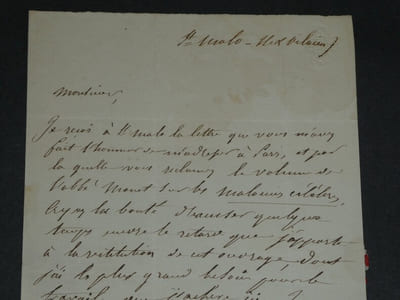 St Malo - Ille & Vilaine
Monsieur,
Je reçois à St Malo la lettre que vous m'avez
fait l'honneur de m'adresser à Paris, et par
la quelle vous réclamez le volume de
l'abbé Manet sur les malouins célèbres,
Ayez la bonté d'excuser quelques
temps encore le retard que j'apporte
à la restitution de cet ouvrage, dont
j'ai le plus grand besoin pour le
travail que j'achève ici